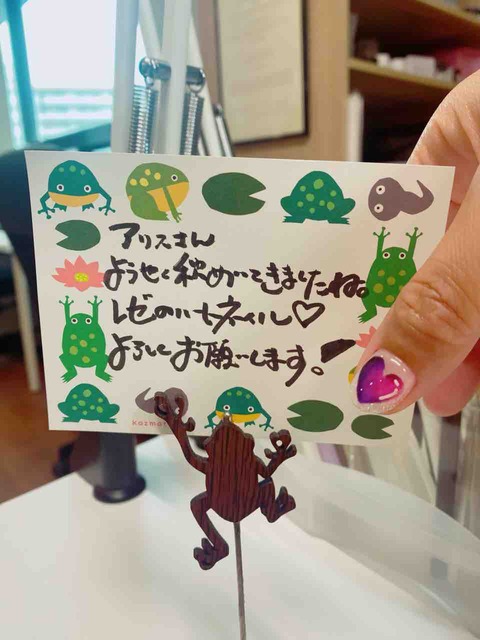 アリスさん
ようやく秋めいてきましたね。
レゼのハートネイル♡
よろしくお願いします!
kazmo